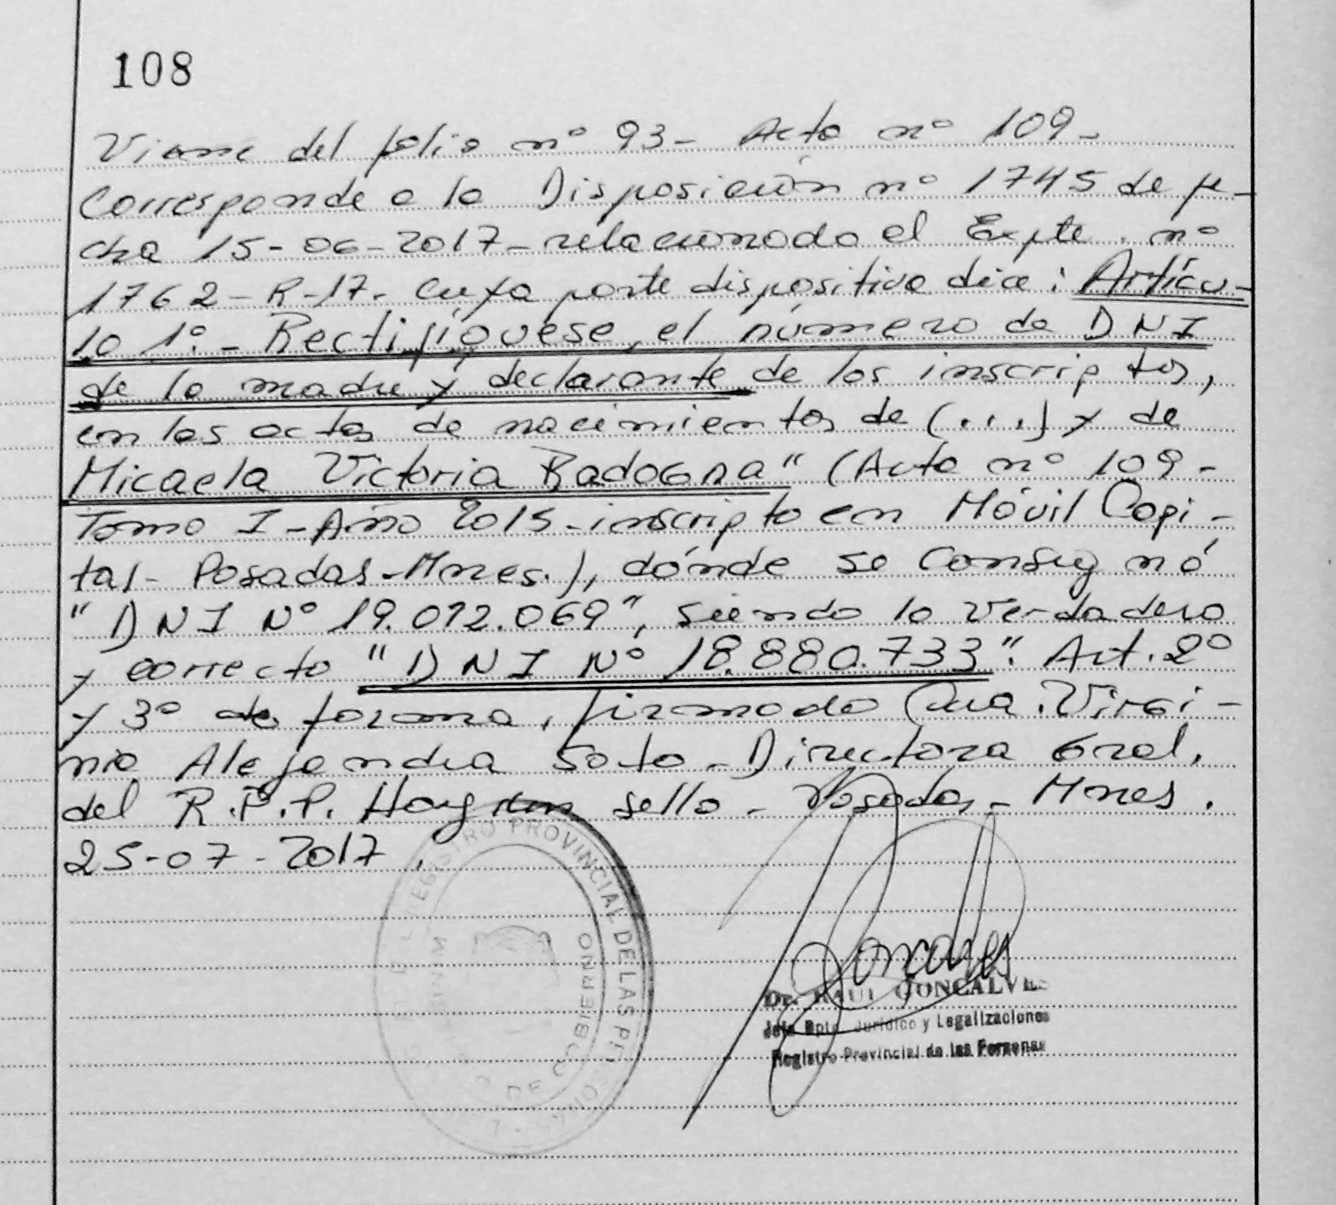 108
Viene del folio nº 93- Acta nº 109-
Corresponde a la Disposición nº 1745 de fe-
cha 15-06-2017-relacionado al Expte. nº
1762-R-17- cuya parte dispositiva dice: Artícu-
lo 1º.- Rectifíquese, el número de DNI
de la madre y declarante de los inscriptos,
en las actas de nacimientos de (...) y de
Micaela Victoria Radogna" (Acta nº 109-
Tomo I-Año 2015-inscripto en Móvil Capi-
tal- Posadas-Mnes.), dónde se consignó
"DNI Nº 19.072.069", siendo lo verdadero
y correcto "DNI Nº 18.880.733". Art. 2º
y 3º de forma, firmado Virgi-
nia Alejandra Soto-Directora Gral.
del R.P.P. Hay un sello- Posadas- Mnes.
25-07-2017.
REGISTRO PROVINCIAL DE LAS PERSONAS
DE GOBIERNO
Goncalves
Dr. RAUL GONCALVES
Jefe Dpto. Jurídico y Legalizaciones
Registro Provincial de las Personas